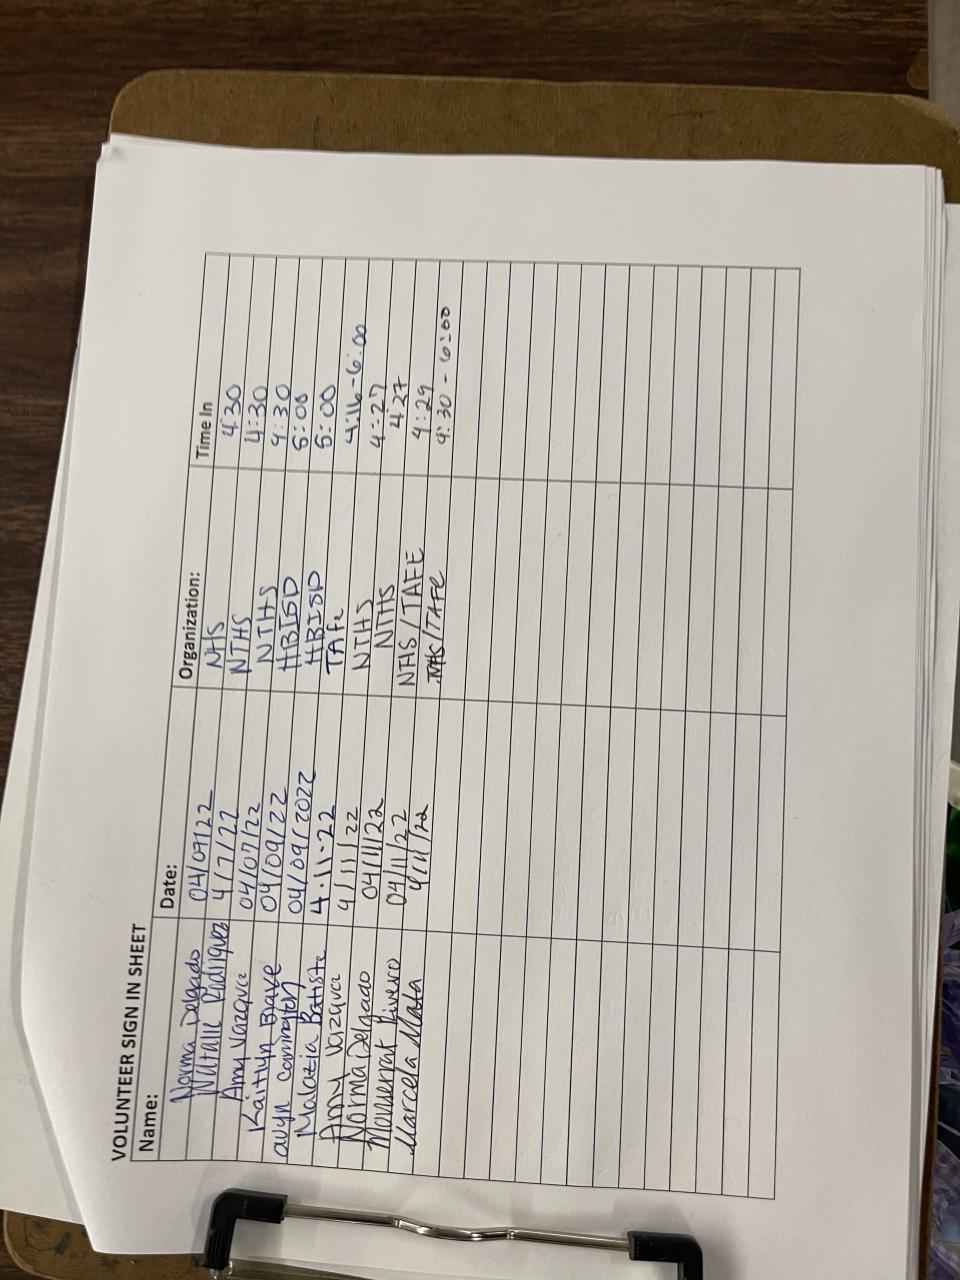 VOLUNTEER SIGN IN SHEET
Name: Date: Organization: Time In
Norma Delgado 04/07/22 NHS 4:30
Natalie Rodriguez 4/7/22 NTHS 4:30
Amy Vazquez 04/07/22 NTHS 4:30
Kaitlyn 04/09/22 HBISD 5:00
avyn Comington 04/09/2022 HBISD 5:00
Malazia Batiste 4.11.22 TAFe 4:16-6:00
Amy Vazquez 4/11/22 NTHS 4:27
Norma Delgado 04/11/22 NTHS 4:27
Monserrat Rivero 04/11/22 NHS/TAFE 4:29
Marcela Mata 4/11/22 NHS/TAFE 4:30-6:00